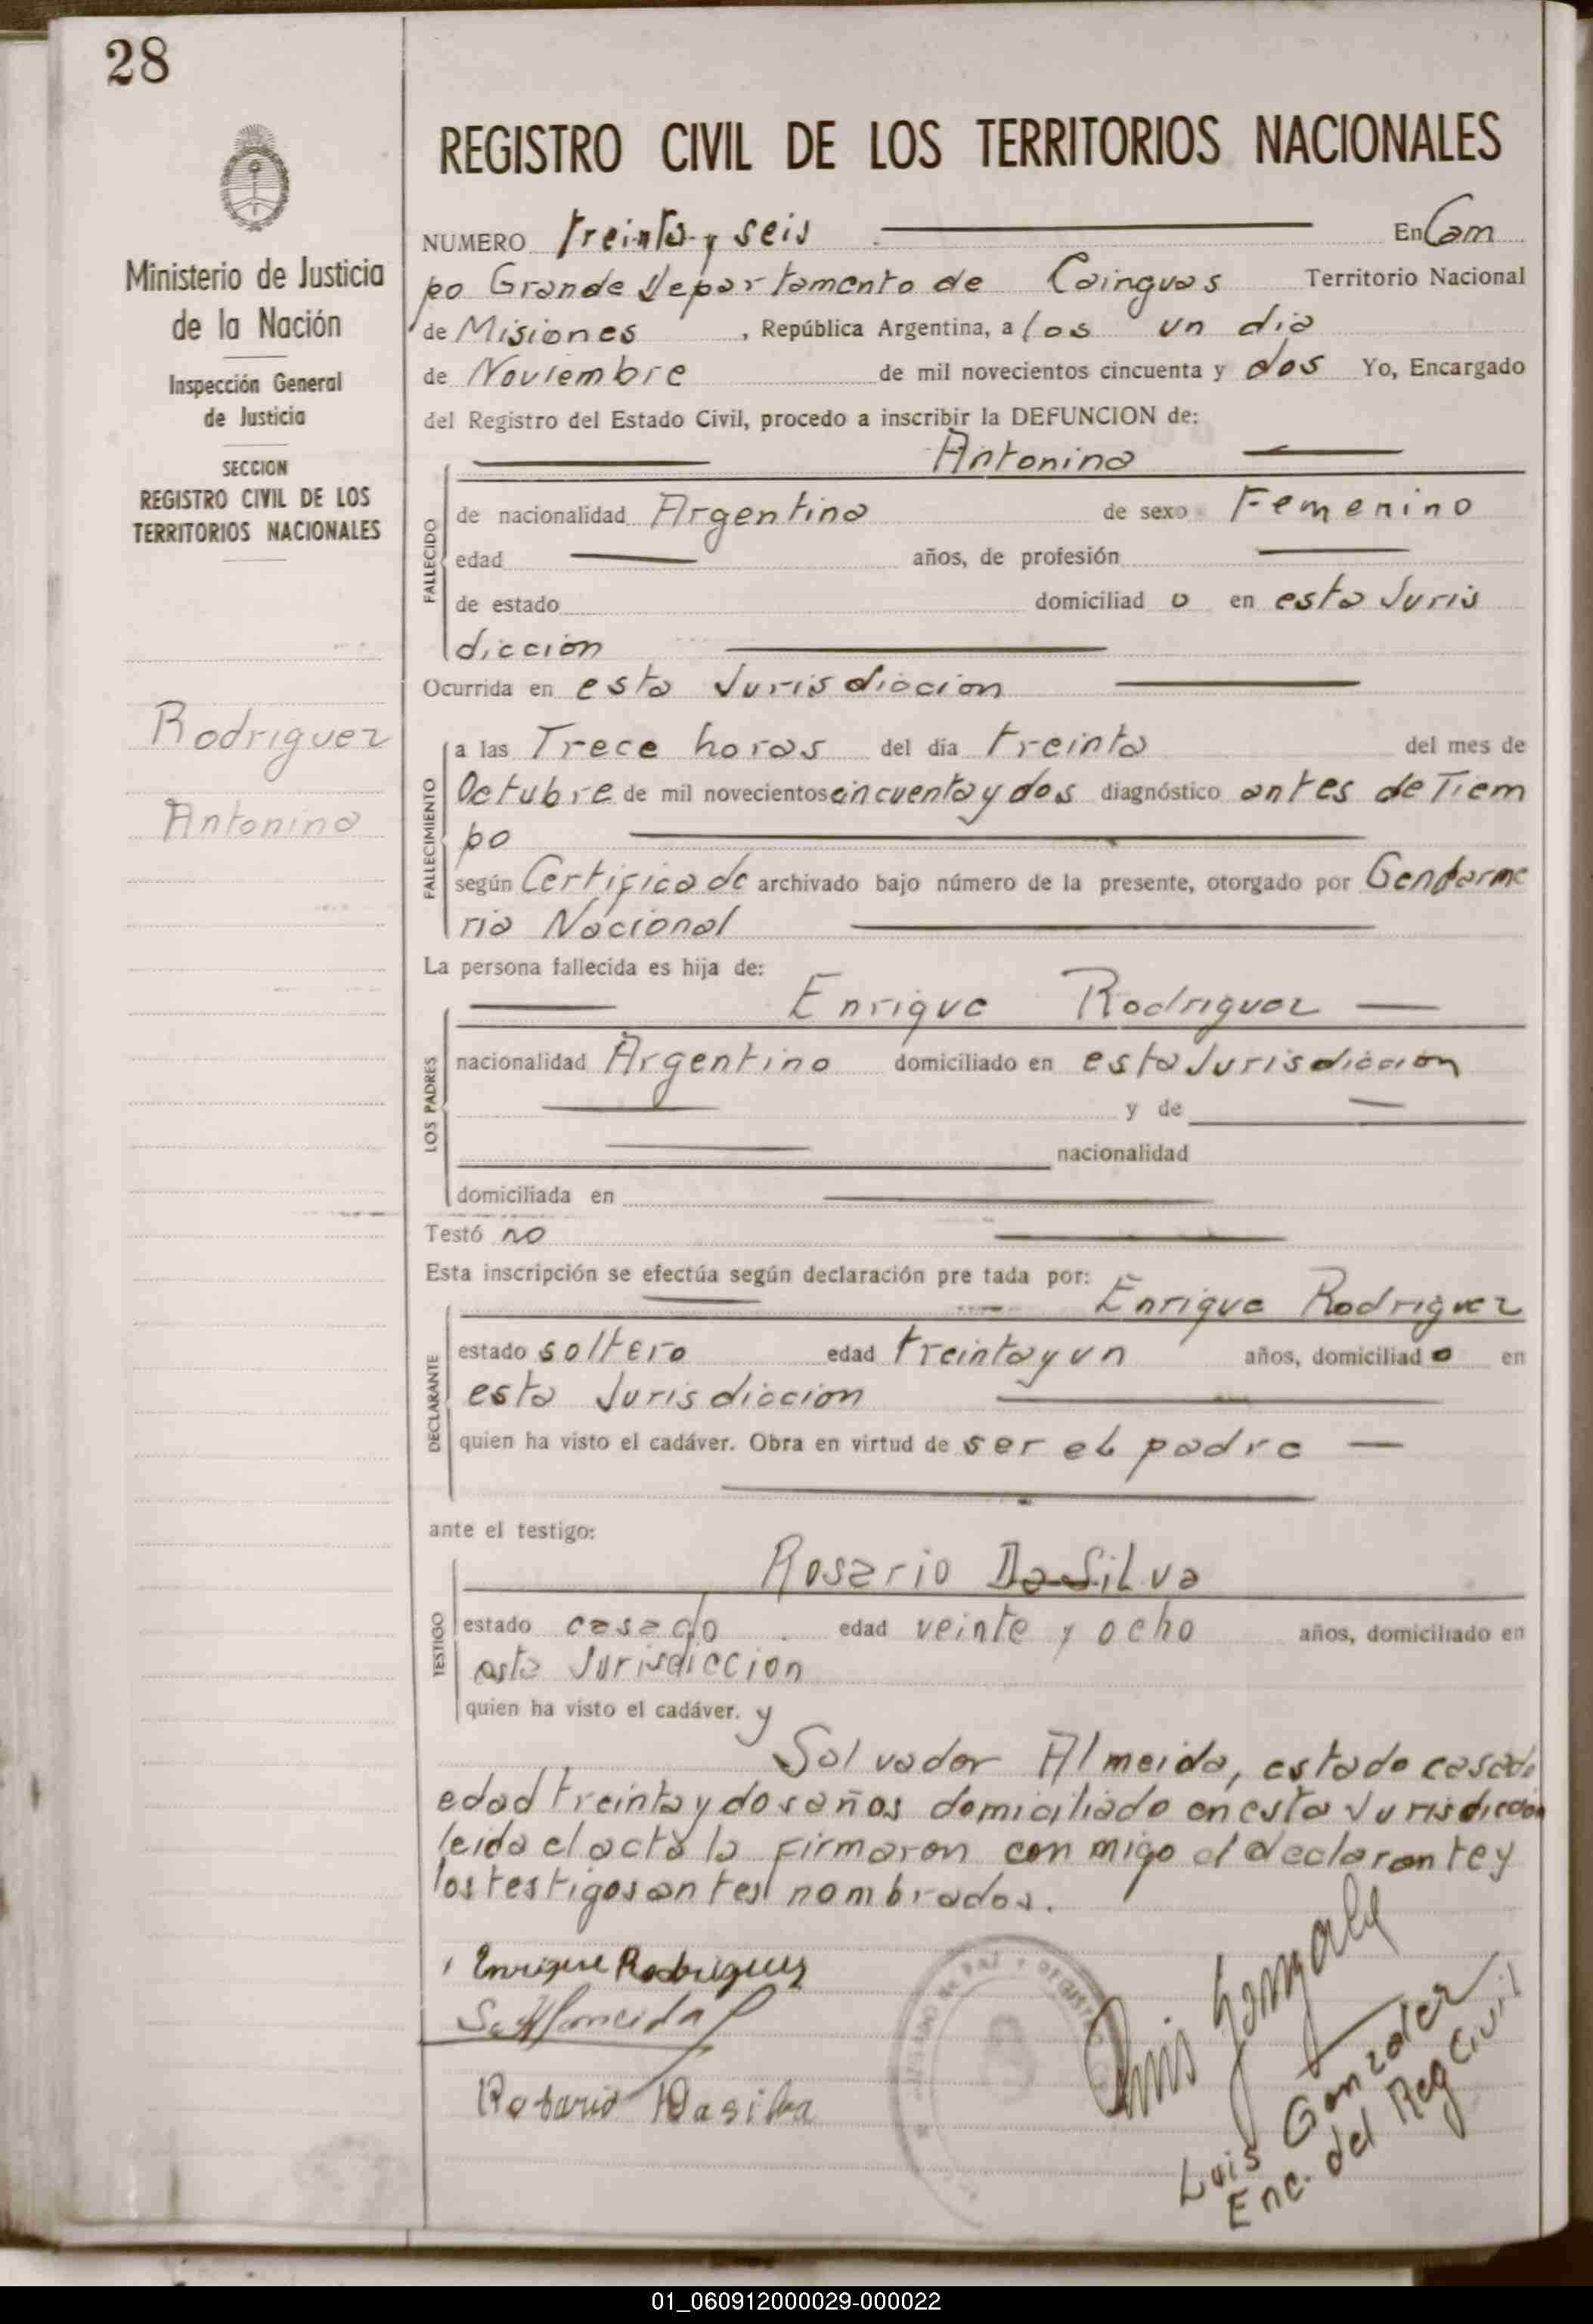 28
Ministerio de Justicia
de la Nación
Inspección General
de Justicia
SECCION
REGISTRO CIVIL DE LOS
TERRITORIOS NACIONALES
Rodriguez
Antonina
REGISTRO CIVIL DE LOS TERRITORIOS NACIONALES
NUMERO treinta y seis En Cam
po Grande Departamento de Cainguas Territorio Nacional
de Misiones, República Argentina, a los un dia
de Noviembre de mil novecientos cincuenta y dos Yo, Encargado
del Registro del Estado Civil, procedo a inscribir la DEFUNCION de:
Antonina
FALLECIDO
de nacionalidad Argentina de sexo Femenino
edad años, de profesión
de estado domiciliad o en esta Juris
diccion
Ocurrida en esta Jurisdiccion
FALLECIMIENTO
a las Trece horas del día treinta del mes de
Octubre de mil novecientos cincuenta y dos diagnóstico antes de Tiem
po
según Certificado archivado bajo número de la presente, otorgado por Gendarme
ria Nacional
La persona fallecida es hija de:
Enrique Rodriguez
LOS PADRES
nacionalidad Argentino domiciliado en esta Jurisdiccion
y de
nacionalidad
domiciliada en
Testó no
Esta inscripción se efectúa según declaración pre tada por:
Enrique Rodriguez
DECLARANTE
estado soltero edad treinta y un años, domiciliad o en
esta Jurisdiccion
quien ha visto el cadáver. Obra en virtud de ser el padre
ante el testigo:
Rosario Da Silva
TESTIGO
estado casado edad veinte y ocho años, domiciliado en
esta Jurisdiccion
quien ha visto el cadáver. y
Salvador Almeida, estado casado
edad treinta y dos años domiciliado en esta Jurisdiccion
leida el acta la firmaron con migo el declarante y
los testigos antes nombrados.
Enrique Rodriguez
S. Almeida
Rosario Dasilva
Luis Gonzalez
Luis Gonzalez
Enc. del Reg Civil
01_060912000029-000022